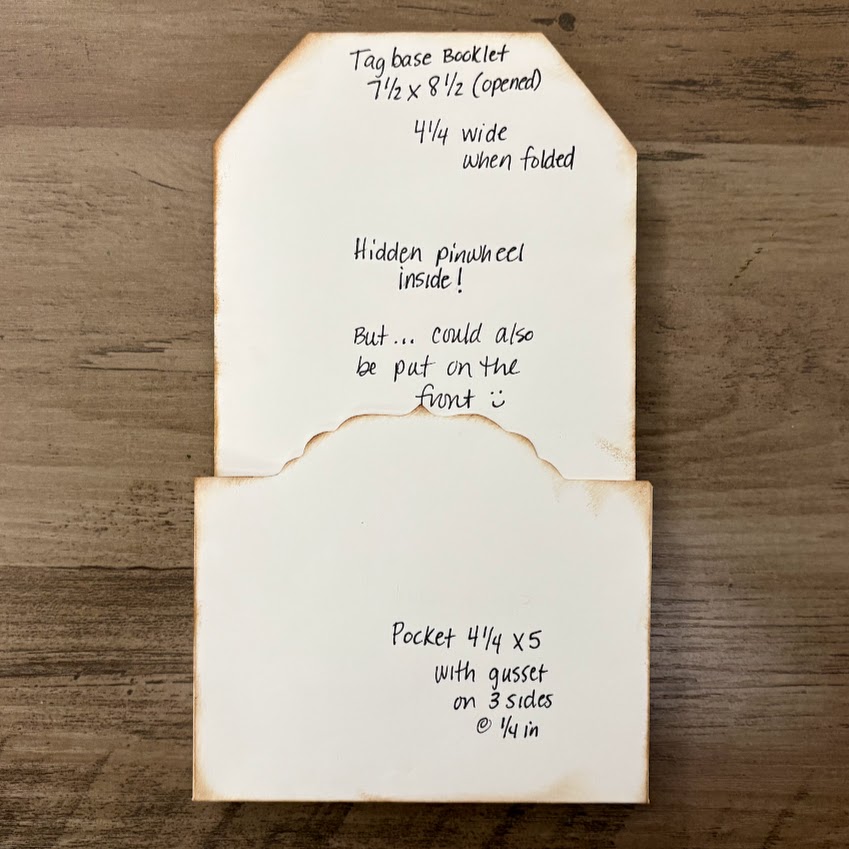 Tag base Booklet
7 1/2 x 8 1/2 (opened)
4 1/4 wide
when folded
Hidden pinwheel
inside!
But... could also
be put on the
front :)
Pocket 4 1/4 x 5
with gusset
on 3 sides
@ 1/4 in